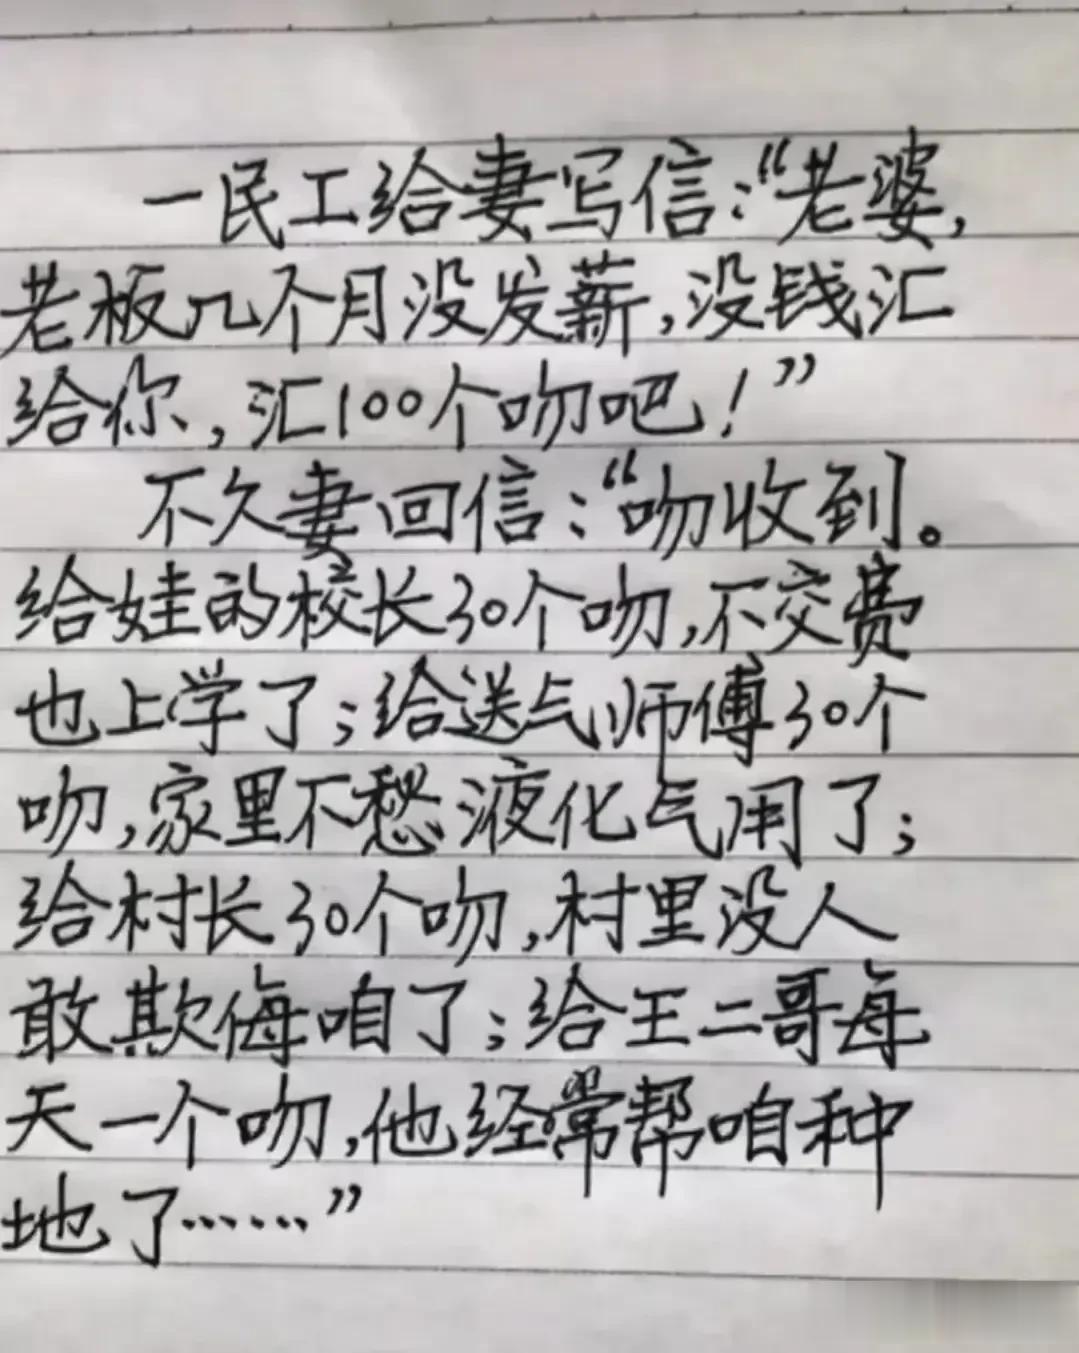 一民工给妻写信："老婆,
老板几个月没发薪,没钱汇
给你,汇100个吻吧!"
不久妻回信："吻收到。
给娃的校长30个吻,不交费
也上学了;给送气师傅30个
吻,家里不愁液化气用了;
给村长30个吻,村里没人
敢欺侮咱了;给王二哥每
天一个吻,他经常帮咱种
地了……"